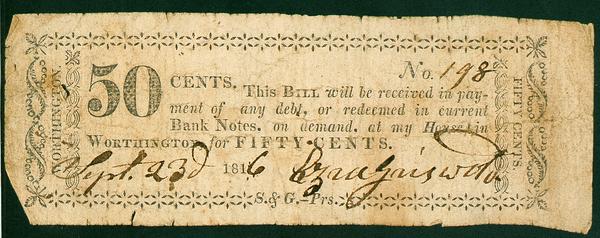 No. 198
WORTHINGTON
50 CENTS. This BILL will be received in pay-
ment of any debt, or redeemed in current
Bank Notes, on demand, at my House in
WORTHINGTON, for FIFTY CENTS.
Sept. 23d 1816 Ezra Griswold
S. & G.—Prs.
FIFTY CENTS